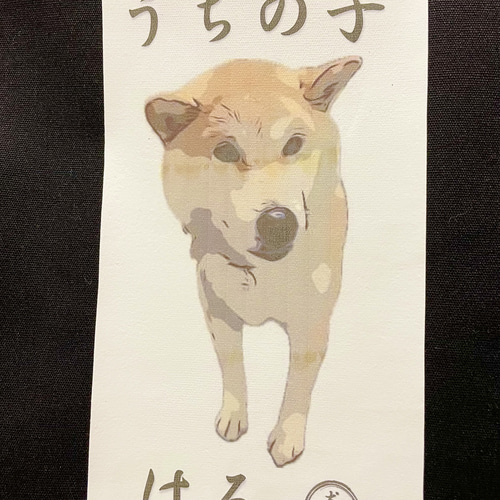 うちの子
はる